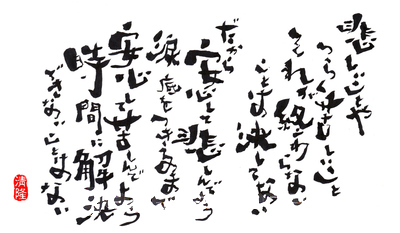 悲しいことや
つらく苦しいこと
それが終わらない
ことは決してない
だから
安心して悲しんでよう
涙 底をつきるまで
安心して苦しんでよう
時間に解決
できないことはない
清隆